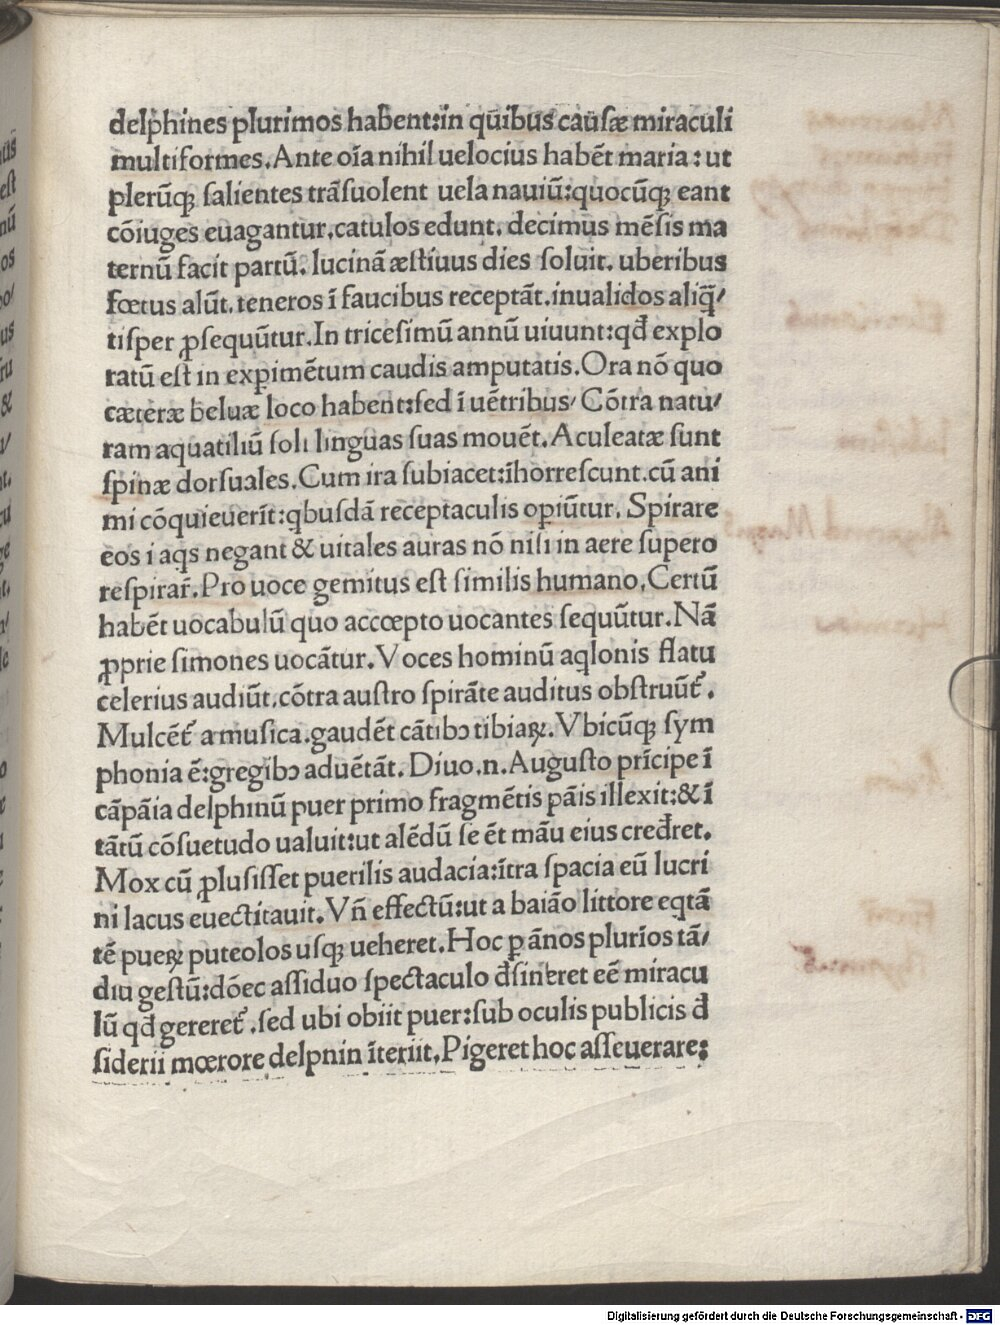 delphines plurimos habent:in qũibus cauſæ miraculi
multiformes.Ante oĩa nihil uelocius habẽt maria: ut
plerũqꝫ ſalientes trãſuolent uela nauiũ:quocũqꝫ eant
cõiuges euagantur.catulos edunt. decimus mẽſis ma
ternũ facit partũ. lucinã æſtiuus dies ſoluit. uberibus
fœtus alũt. teneros ĩ faucibus receptãt.inualidos aliq̃/
tiſper ꝓſequũtur.In triceſimũ annũ uiuunt:qđ explo
ratũ eſt in expimẽtum caudis amputatis.Ora nõ quo
cæteræ beluæ loco habent:ſed ĩ uẽtribus/ Cõtra natu/
ram aquatiliũ ſoli linguas ſuas mouẽt.Aculeatæ ſunt
ſpinæ dorſuales.Cum ira ſubiacet:ĩhorreſcunt.cũ ani
mi cõquieuerĩt:qbuſdã receptaculis opiũtur. Spirare
eos i aqs negant & uitales auras nõ niſi in aere ſupero
reſpirar̃.Pro uoce gemitus eſt ſimilis humano.Certũ
habẽt uocabulũ quo accœpto uocantes ſequũtur.Nã
ꝓprie ſimones uocãtur.Voces hominũ aqlonis flatu
celerius audiũt.cõtra auſtro ſpirãte auditus obſtruũt̃.
Mulcẽt̃ a muſica.gaudẽt cãtibꝰ tibiaꝝ.Vbicũqꝫ ſym
phonia ẽ:gregibꝰ aduẽtãt. Diuo.n.Auguſto prĩcipe ĩ
cãpãia delphinũ puer primo fragmẽtis pãis illexit:& ĩ
tãtũ cõſuetudo ualuit:ut alẽdũ ſe ẽt mãu eius cređret.
Mox cũ ꝓluſiſſet puerilis audacia:ĩtra ſpacia eũ lucri
ni lacus euectitauit. Vñ effectũ:ut a baião littore eqtã
tẽ pueꝝ puteolos uſqꝫ ueheret.Hoc ꝑ ãnos plurĩos tã/
diu geſtũ:dõec aſſiduo ſpectaculo đſineret eẽ miracu
lũ qđ gereret̃ .ſed ubi obiit puer:ſub oculis publicis đ
ſiderii mœrore delpnin ĩteriit.Pigeret hoc aſſeuerare:
Digitalisierung gefördert durch die Deutsche Forschungsgemeinschaft - DFG